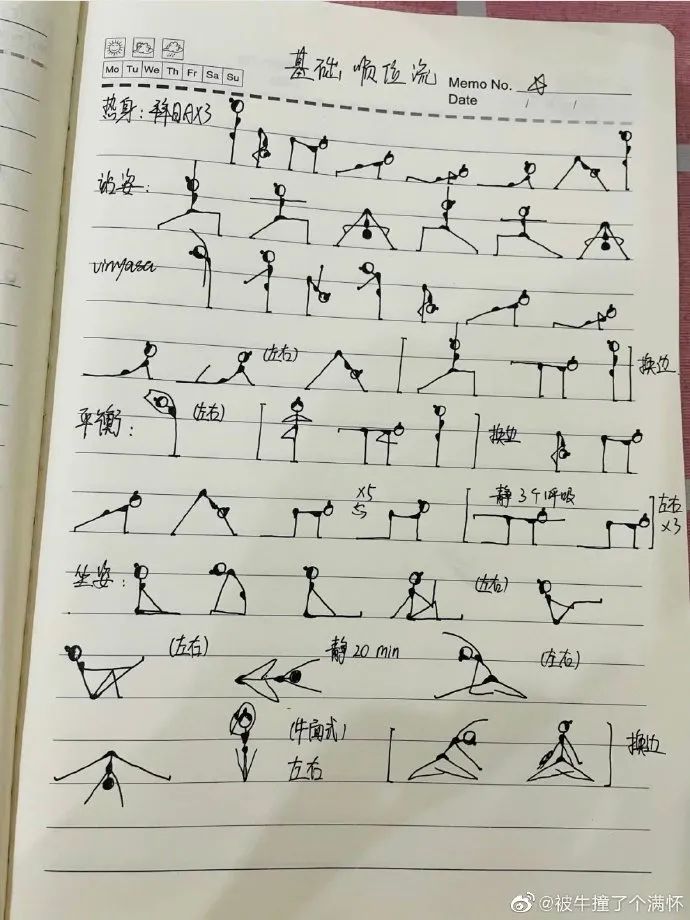 基础顺位流
Memo No.
Date / /
Mo Tu We Th Fr Sa Su
热身: 拜日A×3
站姿:
vinyasa
(左右)
换边
平衡:
(左右)
换边
×5
静 3个呼吸
左右
×3
坐姿:
(左右)
(左右)
静 20 min
(左右)
(牛面式)
左右
换边
@被牛撞了个满怀